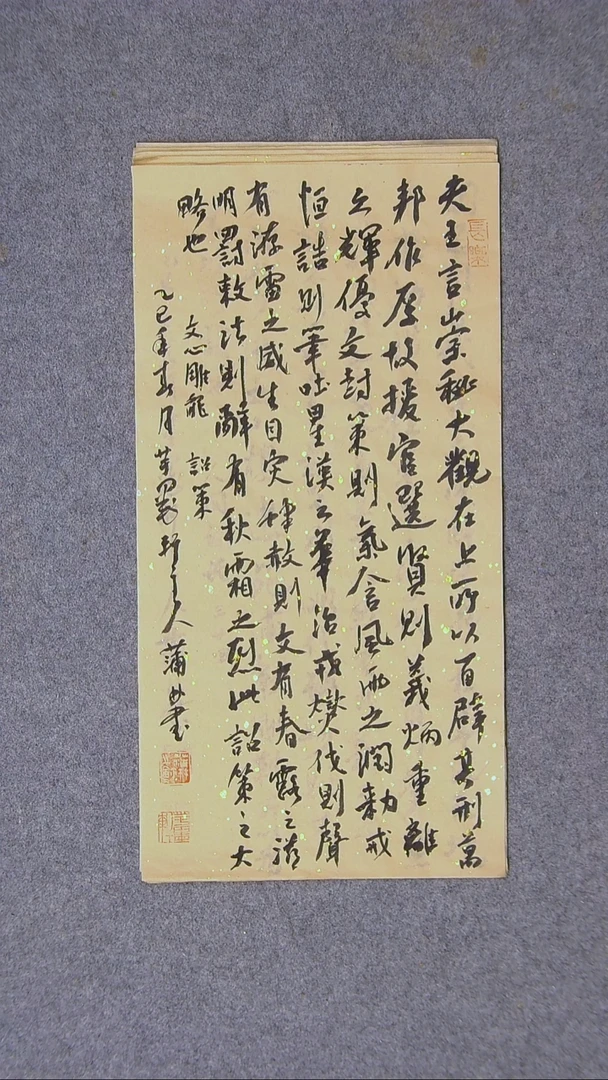 夫王言崇秘大觀在上所以百辟其刑萬
邦作孚故授官選賢則義炳重離
之輝優文封策則氣含風雨之潤勅戒
恒誥則筆吐星漢之華治戎燮伐則聲
有洊雷之威眚灾肆赦則文有春露之滋
明罰敕法則辭有秋霜之烈此詔策之大
略也 文心雕龍 詔策
乙巳年春月 主人 蒲 書